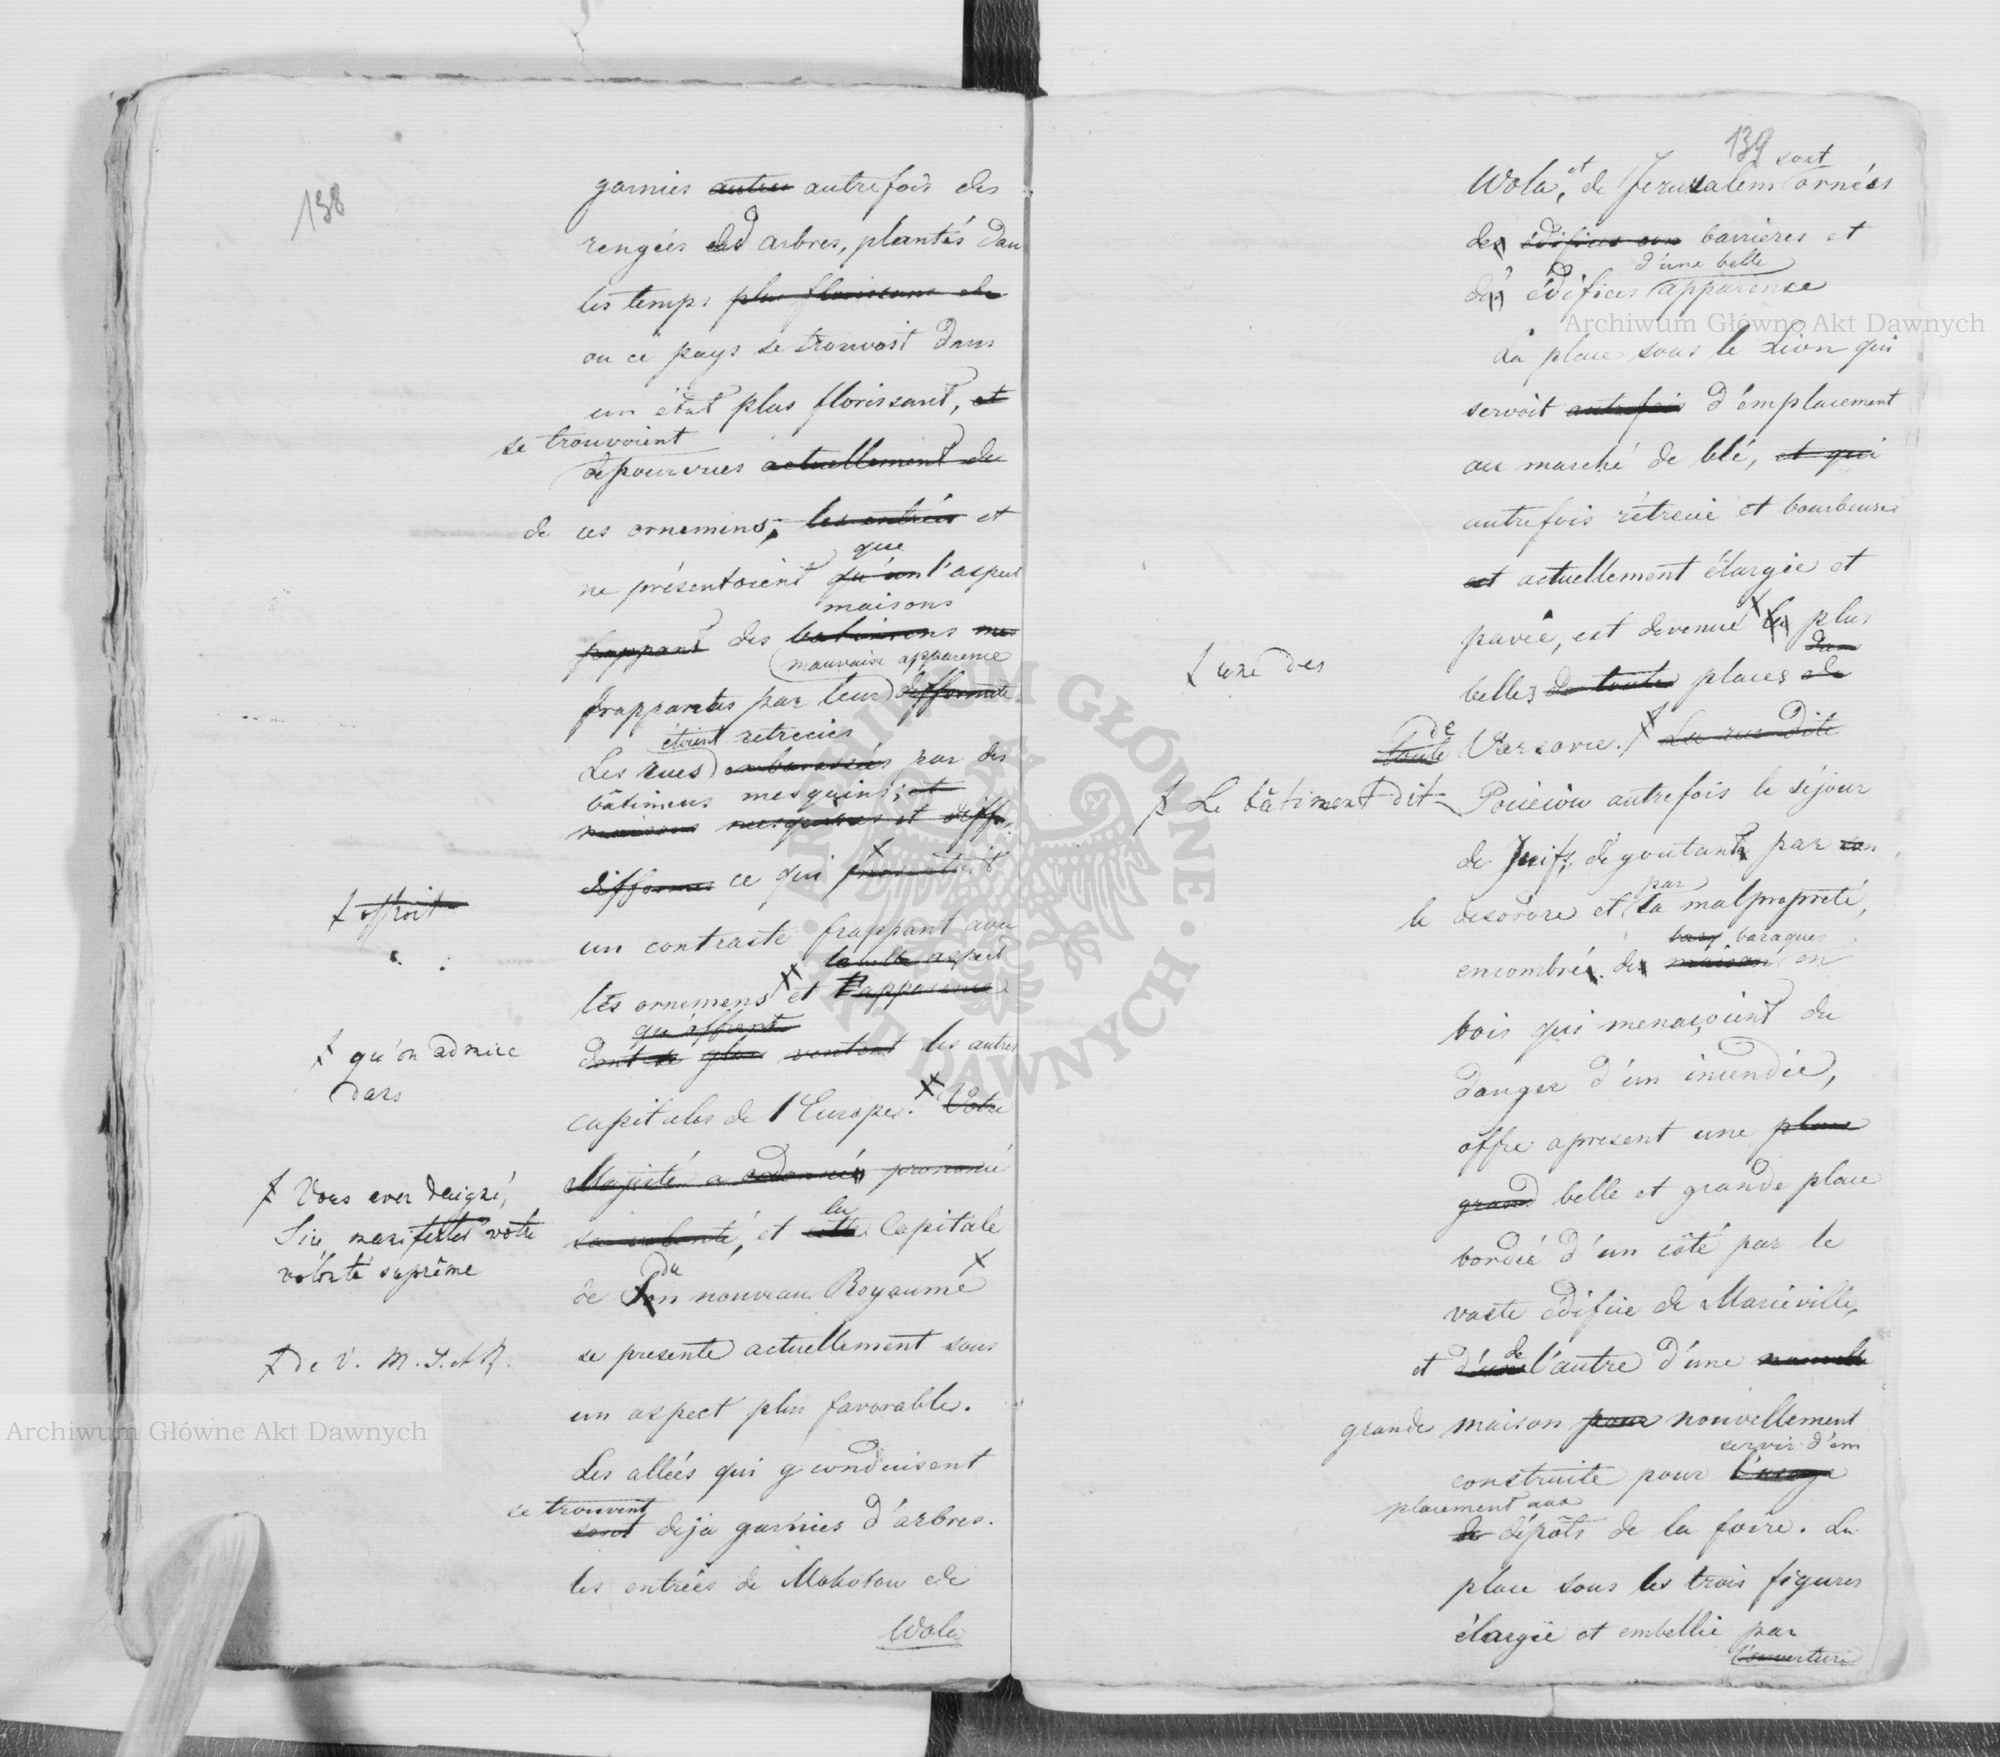 138
garnies autres autrefois des
rengées des arbres, plantés dans
les temps plus florissans de
ou ce pays se trouvoit dans
un état plus florissant, et
se trouvoient
depourvues actuellement de
de ces ornemens, les entrées et
que
ne présentoient qu'un l'aspect
maisons
frappant des batimens
mauvaise apparence
frappantes par leur difformité
étoient retrecies
Les rues embarassées par des
bâtimens mesquins; et
maisons mesquines et diffor
difformes ce qui présentoit
ƚ offroit
un contraste frappant avec
la belle aspect
les ornemens et l'apparence
qu'offrent
ƚ qu'on admire
dans
les autres
capitales de l'Europe. Votre
Majesté a ordonné prononcé
ƚ Vous avez daigné,
Sire manifester votre
volonté suprême
la
sa volonté, et cette Capitale
du
de Son nouveau Royaume
ƚ de V. M. I. et R.
se presente actuellement sous
un aspect plus favorable.
Les allées qui y conduisent
se trouvent
sont deja garnies d'arbres.
les entrées de Mokotow de
Wola
139
sont
Wola, et de Jerusalem ornées
des édifices barrières et
d'une belle
des édifices apparence
La place sous le Lion qui
servoit autrefois d'emplacement
au marché de blé, et qui
autrefois rétrecie et bourbeuse
est actuellement élargie et
pavée, est devenue la plus
ƚ une des
dans
belles de toute places de
de
toute Varsovie. La rue dite
ƚ Le bâtiment dit Pocieiow autrefois le séjour
de Juifs, dégoutant par son
par
le desordre et sa malpropreté,
baraques
encombré de maison en
bois qui menaçoient du
danger d'un incendie,
offre apresent une place
grand belle et grande place
bordée d'un côté par le
vaste édifice de Marieville,
de
et d'une l'autre d'une nouvelle
grande maison pour nouvellement
servir d'em
construite pour l'usage
placement aux
de dépôts de la foire. La
place sous les trois figures
élargie et embellie par
l'ouverture
Archiwum Główne Akt Dawnych
Archiwum Główne Akt Dawnych
ARCHIWUM GŁÓWNE AKT DAWNYCH